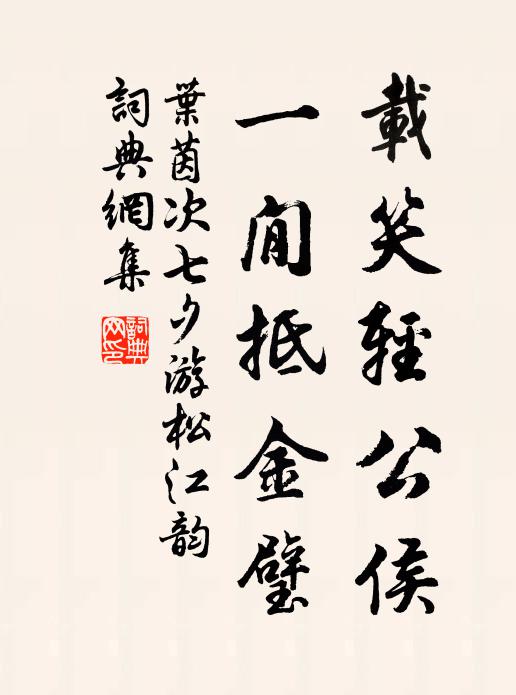 載笑輕公侯
一閒抵金璧
葉茵次七夕游松江韵
詞典網集
詞典网印